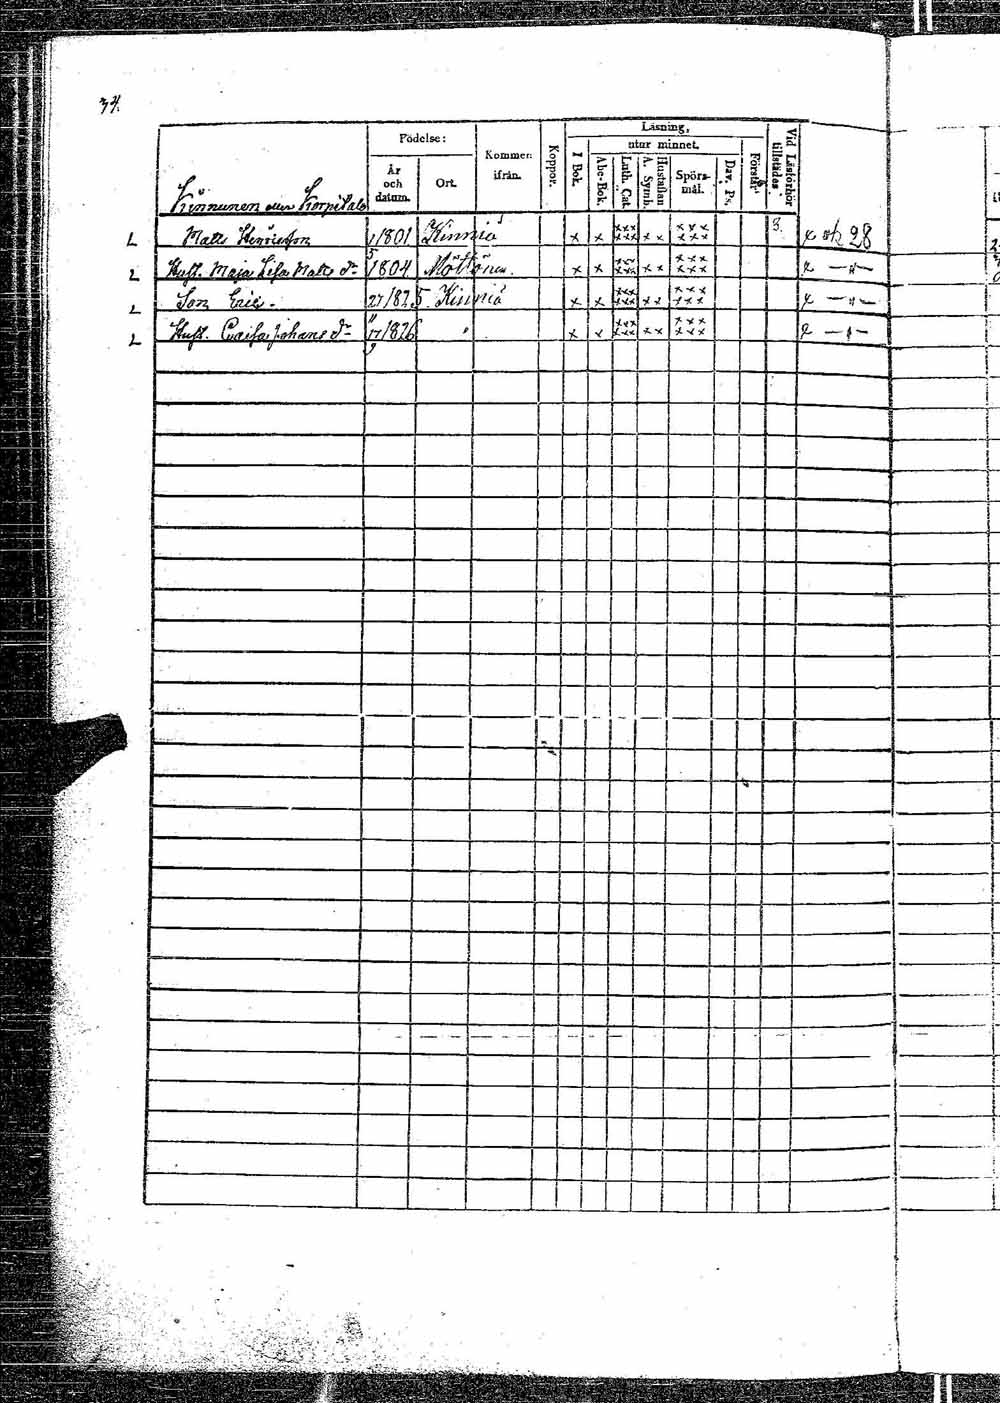 34.
Läsning,
Födelse: utur minnet.
År och datum. Ort. Kommer ifrån. Koppor. I Bok. Abc-Bok. Luth. Cat. Hustaflan A. Symb. Spörsmål. Dav. Ps. Förstår Vid Läsförhör tillstädes
Kinnunen Korpi
L Matts Henricsson 1801 Kinnia x x xxx xxx x x xxx xxx 3. 28
L Hust. Maja Lisa Matts dr 5/1804 Möttönen x x x x xxx xxx
L Son Eric 27/11 1825 Kinnia x x xxx xxx x x xxx xxx
L Hust. Johans dr 17/9 1826 " x x xxx xxx x x xxx xxx